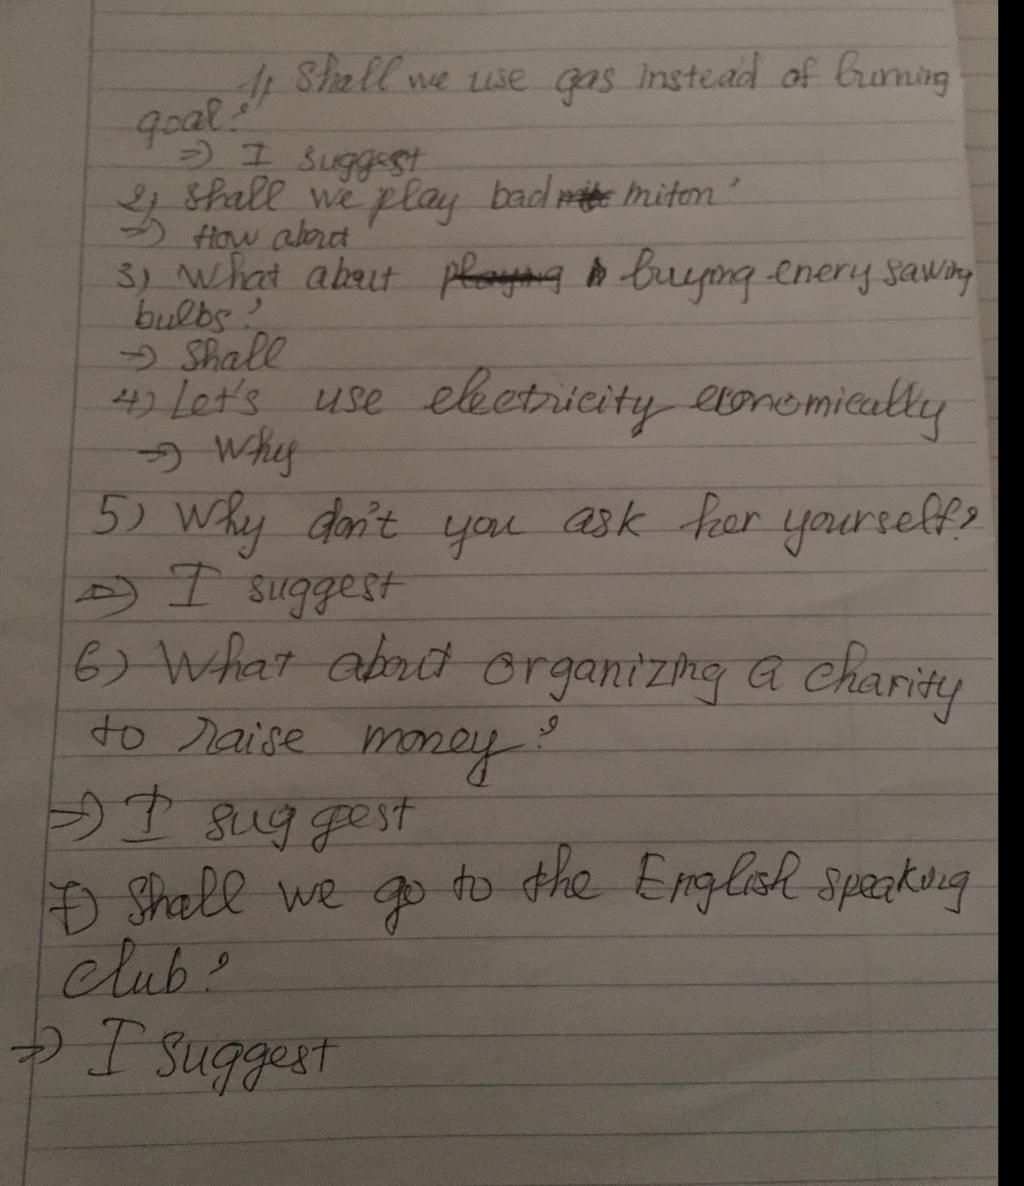 1, Shall we use gas instead of burning
goal?
=> I suggest
2, Shall we play bad miton?
=> How about
3) What about playing buying enery saving
bulbs?
=> Shall
4) Let's use electricity economically
=> Why
5) Why don't you ask her yourself?
=> I suggest
6) What about organizing a charity
to raise money?
=> I suggest
7) Shall we go to the English speaking
club?
=> I suggest